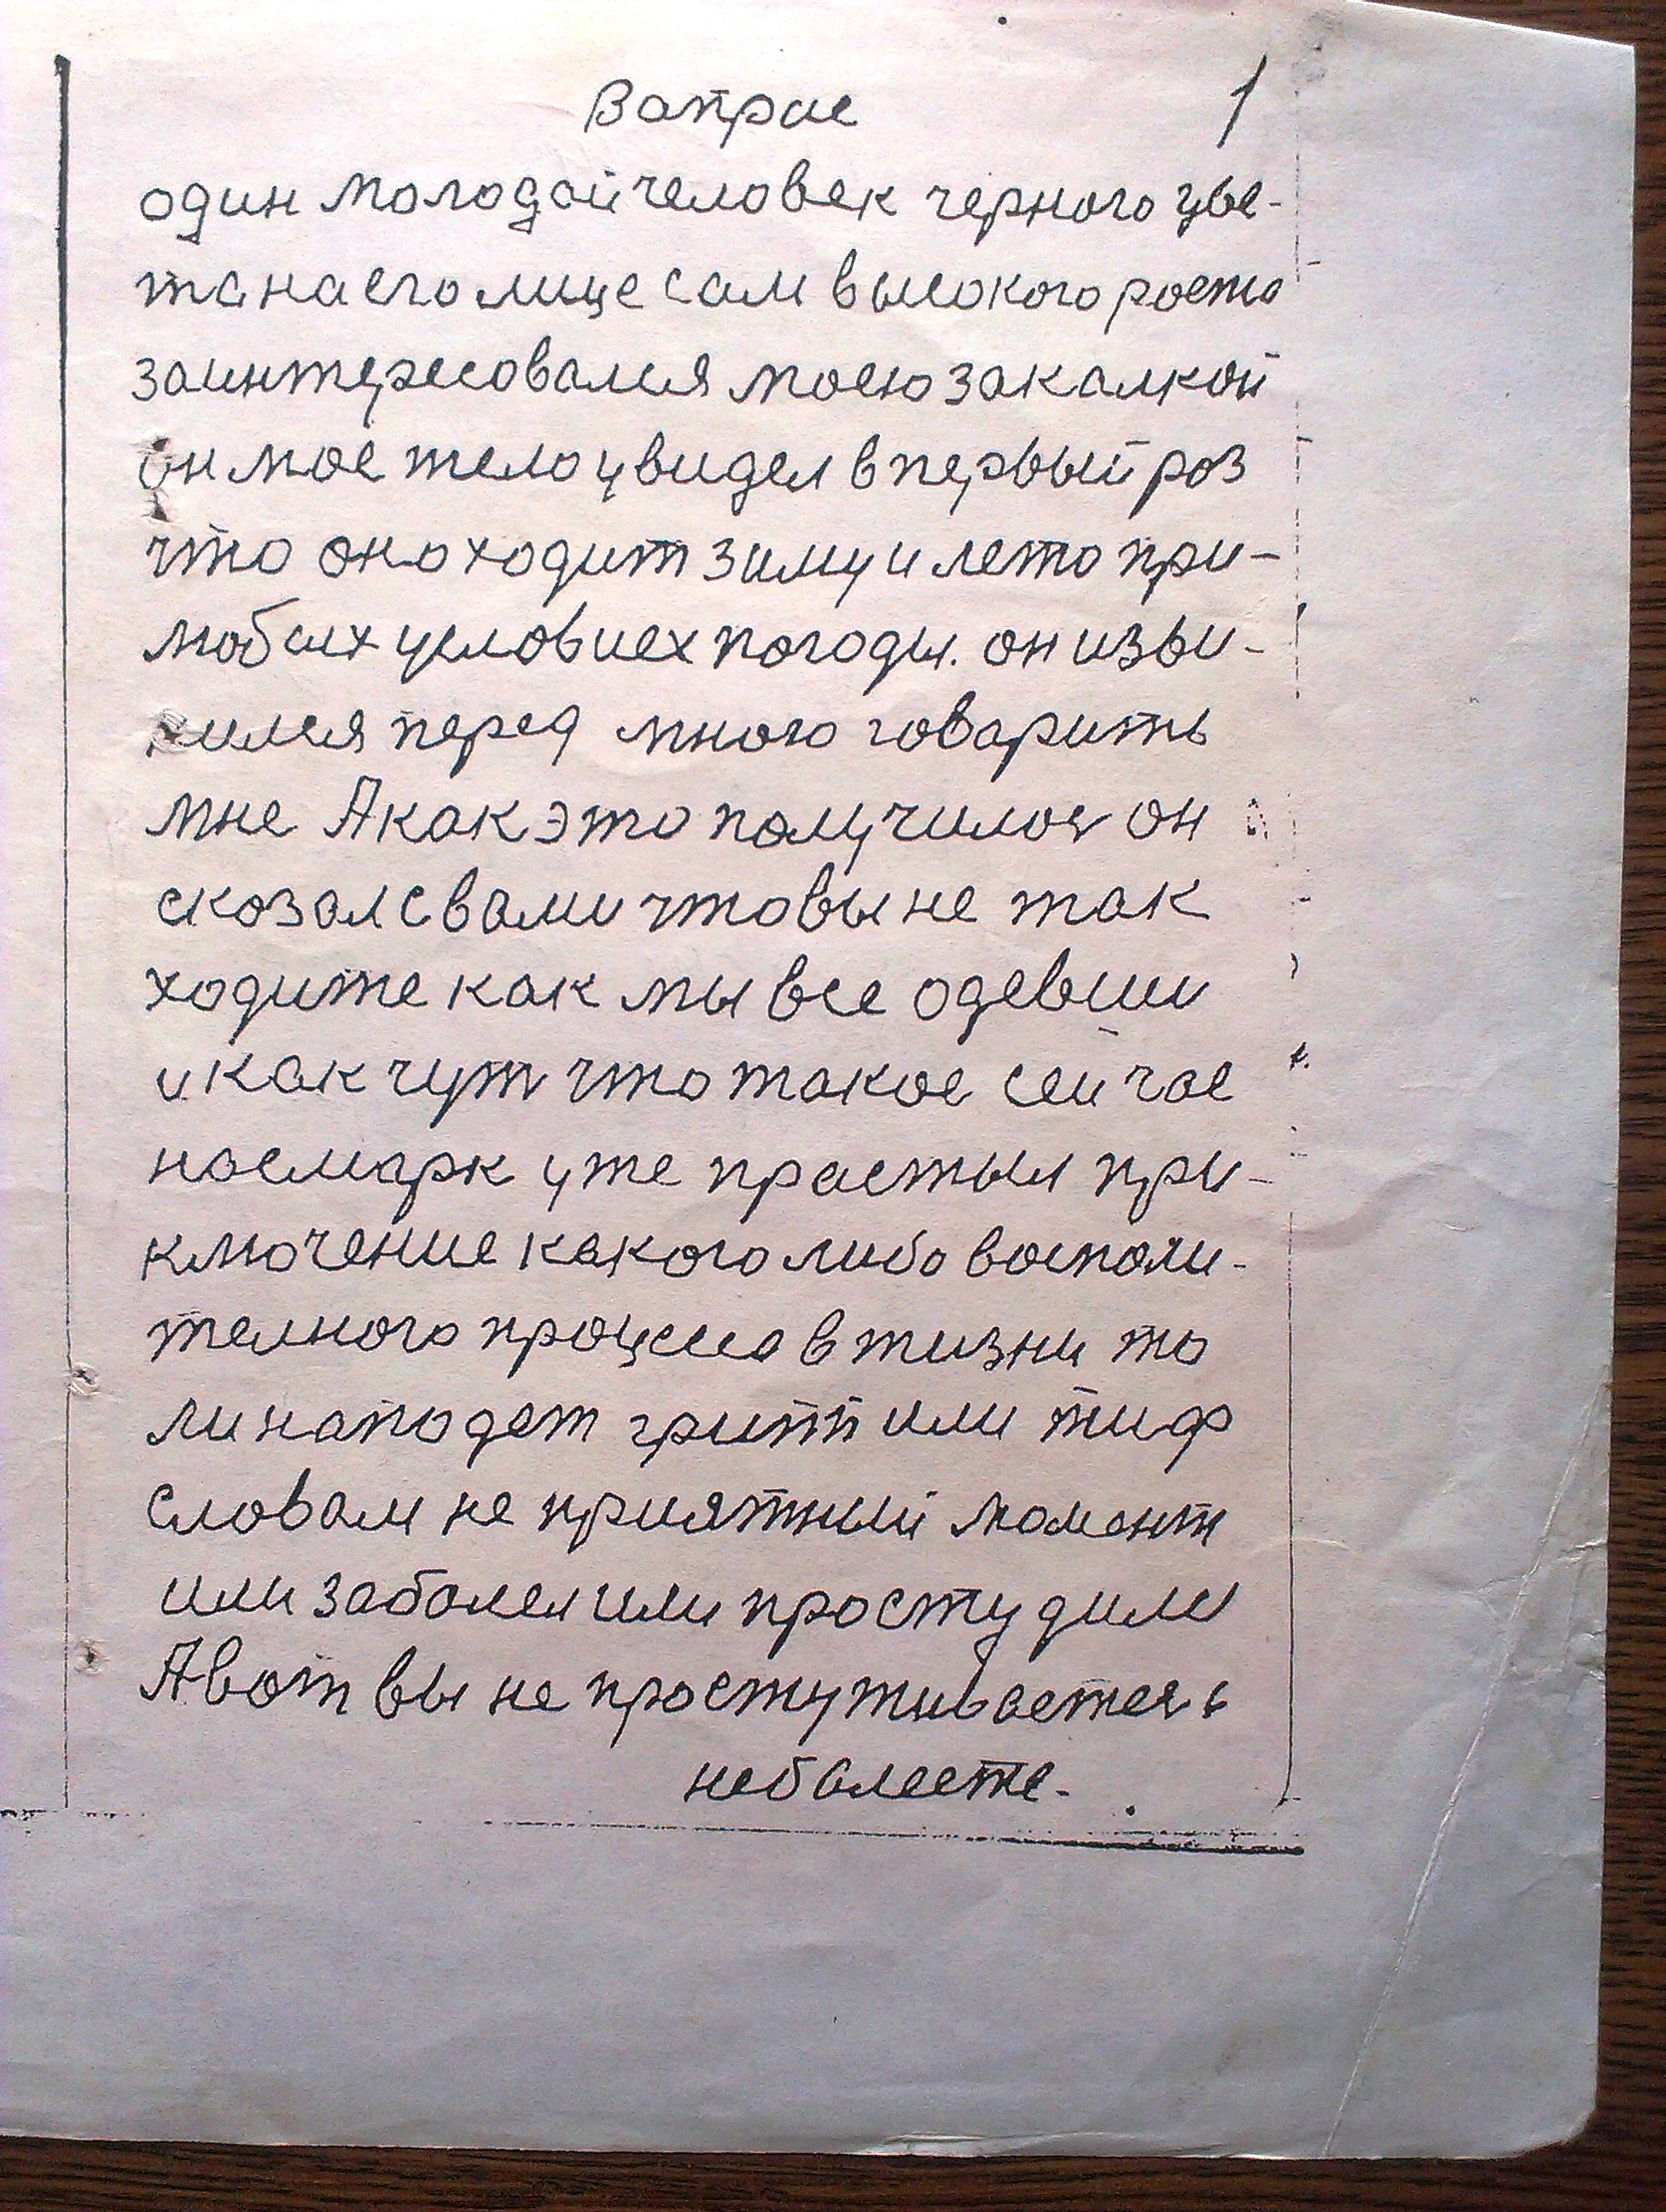 Вапрос
1
один молодой человек черного цве-
та на его лице сам высокого роста
заинтересовался моею закалкой
он мое тело увидел в первый роз
что оно ходит зиму и лето при-
любых условиех погоды. он изви-
нился перед мною говарить
мне А как это получилось он
сказал с вами что вы не так
ходите как мы все одевши
и как чуть что такое сейчас
носмарк уже прастыл при-
ключение какого либо воспали-
телного процесса в жизни то
ли нападет грипп или тиф
словам не приятный момент
или заболел или простудили
А вот вы не простуживаетесь
не балеете.